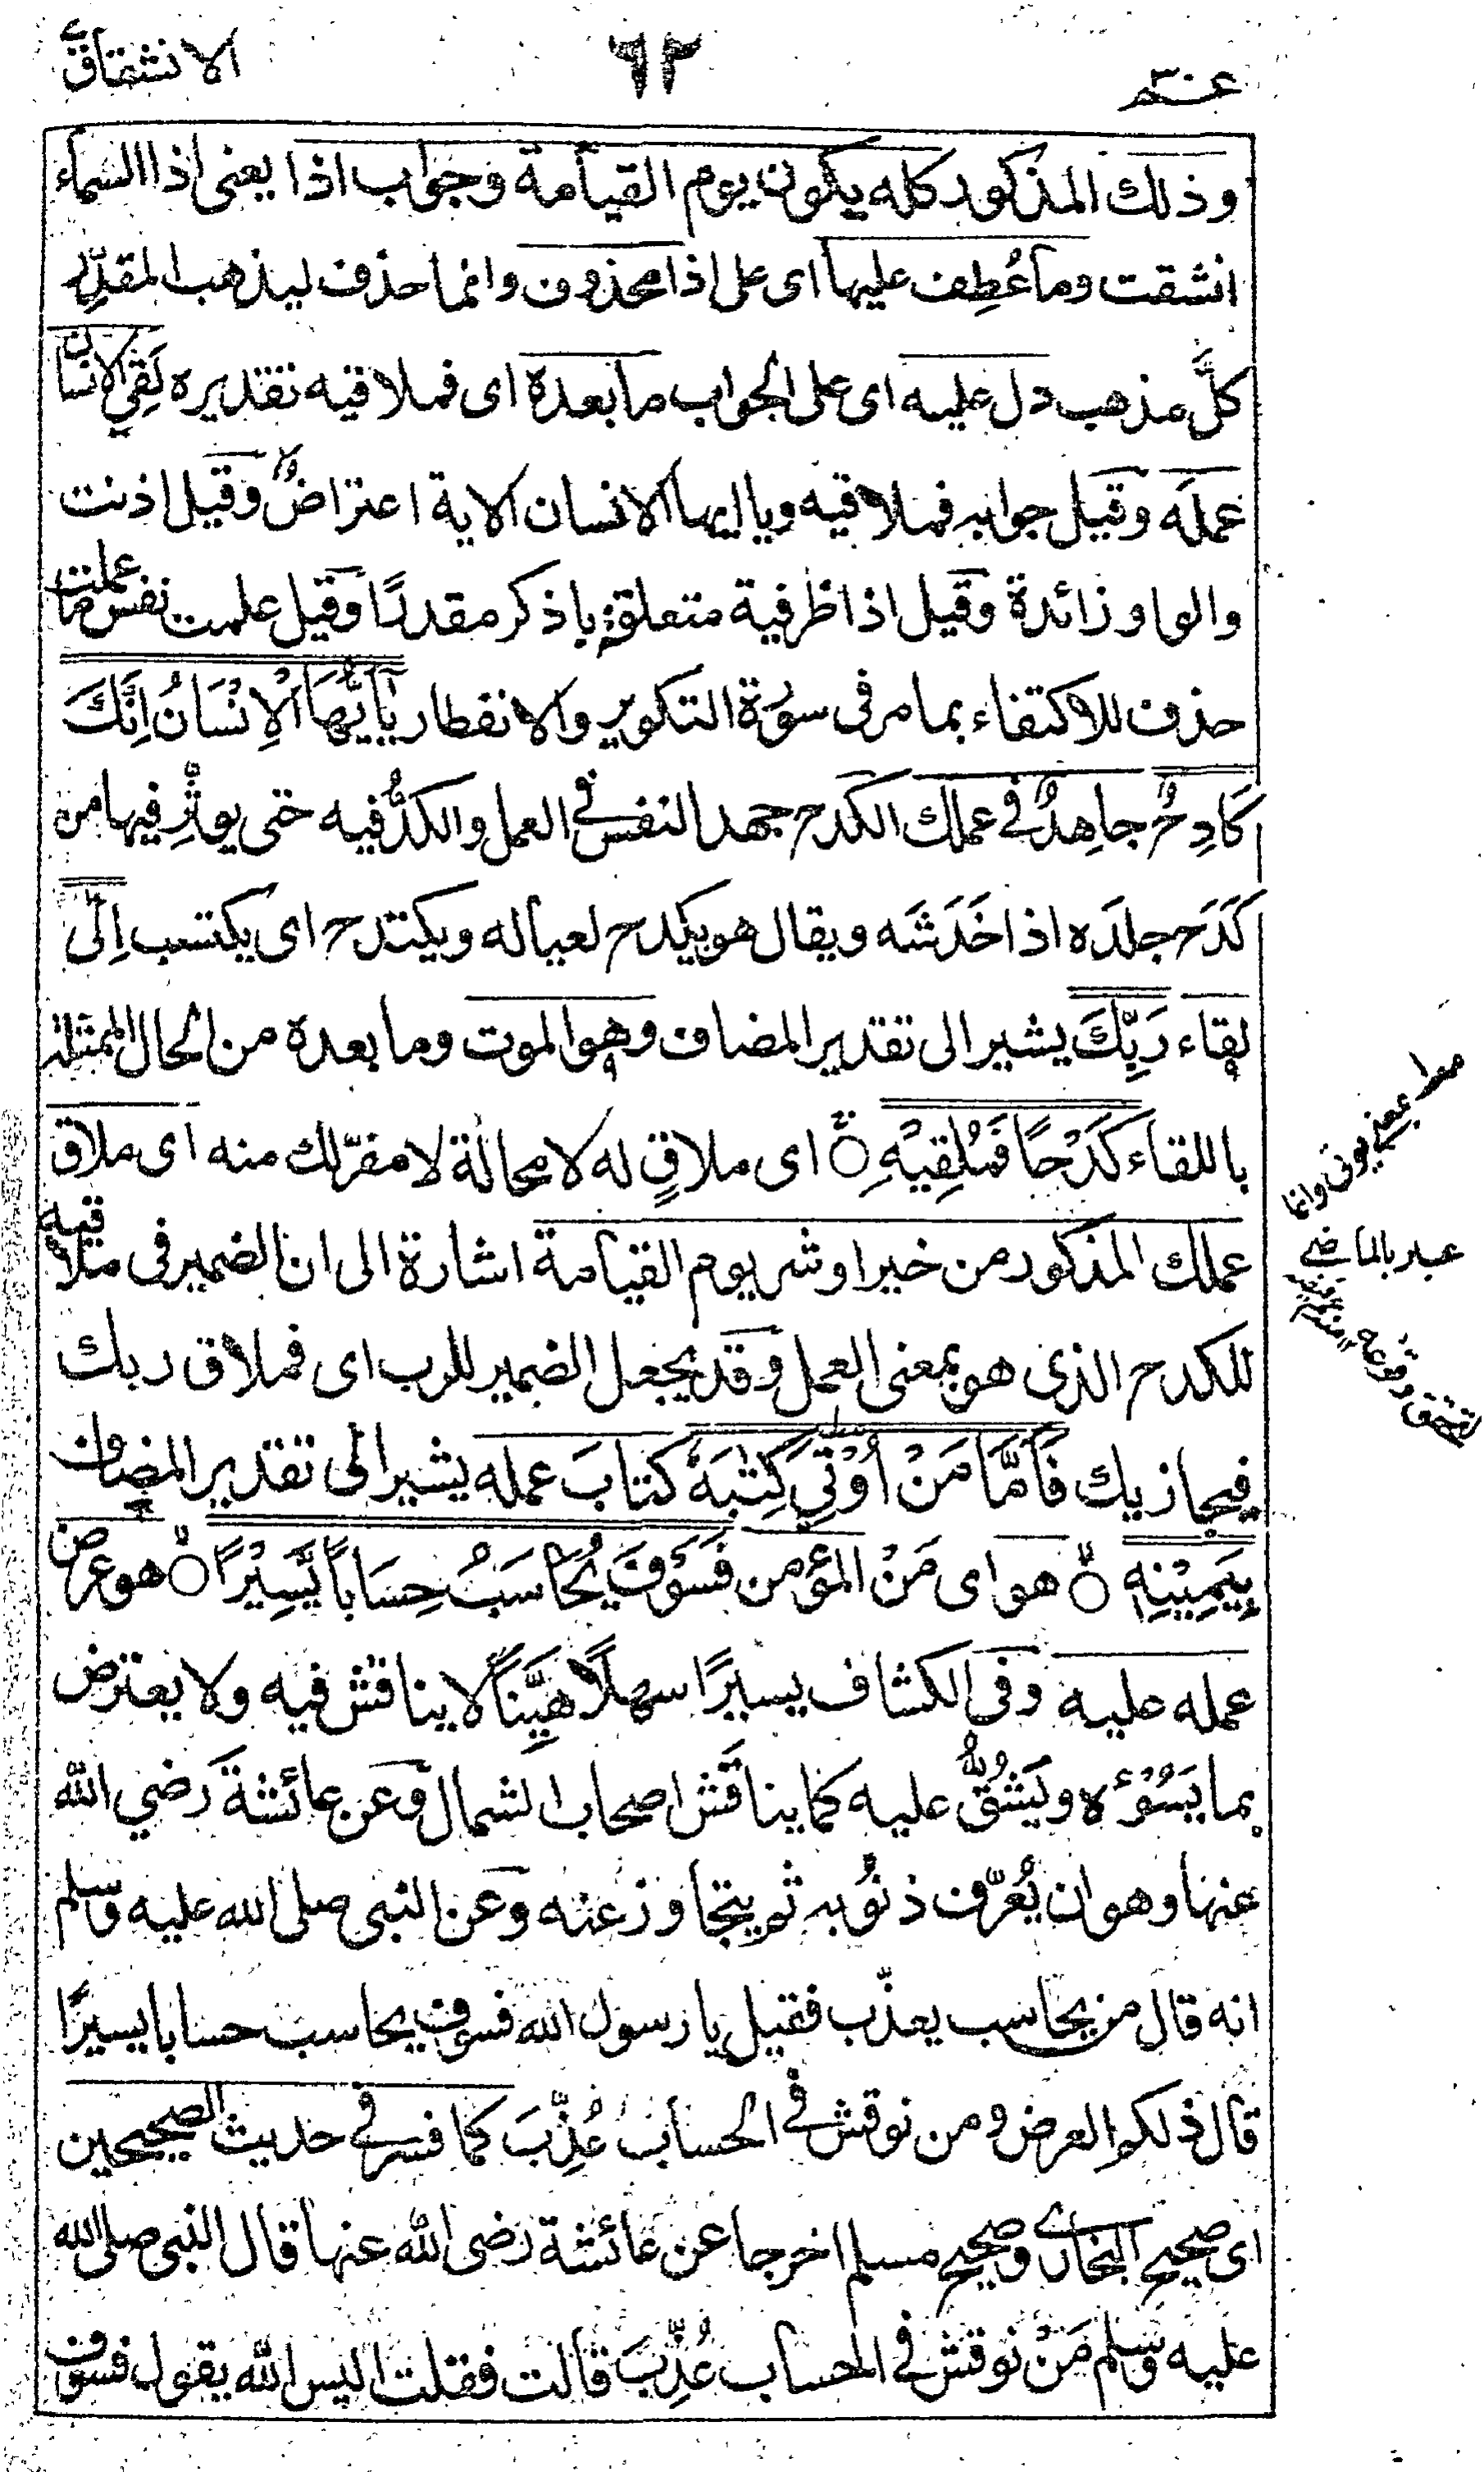 عم ٦٢ الانشقاق
وذلك المذكور كله يكون يوم القيامة وجواب اذا يعنى اذا السماء
انشقت وما عُطِف عليها اى على اذا محذوف وانما حذف ليذهب المقدِّر
كلَّ مذهب دل عليه اى على الجواب ما بعده اى فملاقيه تقديره لَقِيَ الانسان
عملَه وقيل جوابه فملاقيه ويا ايها الانسان الاية اعتراضٌ وقيل اذنت
والواو زائدة وقيل اذا ظرفية متعلقة باذكر مقدرًا وقيل علمت نفس ما عملت
حذف للاكتفاء بما مر فى سورة التكوير والانفطار يٰٓاَيُّهَا الْاِنْسَانُ اِنَّكَ
كَادِحٌ جاهِدٌ فى عملك الكدح جهد النفس فى العمل والكدُّ فيه حتى يوثِّر فيها من
كَدَح جلدَه اذا خَدَشَه ويقال هو يكدح لعياله ويكتدح اى يكتسب اِلٰى
لقاء رَبِّكَ يشير الى تقدير المضاف وهو الموت وما بعده من الحال الممثلة
باللقاء كَدْحًا فَمُلٰقِيْهِ اى ملاقٍ له لا محالة لا مفرّ لك منه اى ملاق
عملك المذكور من خير او شر يوم القيامة اشارة الى ان الضمير فى ملاقيه
للكدح الذى هو بمعنى العمل وقد يجعل الضمير للرب اى فملاق ربك
فيجازيك فَاَمَّا مَنْ اُوْتِىَ كِتٰبَهٗ كتابَ عمله يشير الى تقدير المضاف
بِيَمِيْنِهٖ هو اى مَنْ المؤمن فَسَوْفَ يُحَاسَبُ حِسَابًا يَّسِيْرًا هو عرض
عمله عليه وفى الكشاف يسيرًا سهلًا هيِّنًا لا يناقش فيه ولا يعترض
بما يَسُوْءُه ويَشُقُّ عليه كما يناقَش اصحاب الشمال وعن عائشةَ رضي الله
عنها وهو ان يُعرَّف ذنُوبه ثم يتجاوز عنه وعن النبى صلى الله عليه وسلم
انه قال من يحاسب يعذَّب فقيل يا رسول الله فسوف يحاسب حسابا يسيرًا
قال ذلكم العرض ومن نوقش فى الحساب عُذِّبَ كما فسر فى حديث الصحيحين
اى صحيح البخارى وصحيح مسلم اخرجا عن عائشة رضى الله عنها قال النبى صلى الله
عليه وسلم مَنْ نوقش فى الحساب عُذِّبَ قالت فقلت اليس الله يقول فسوف
بمعنى يوتى وانما
عبر بالماضى
لتحقق وقوعه